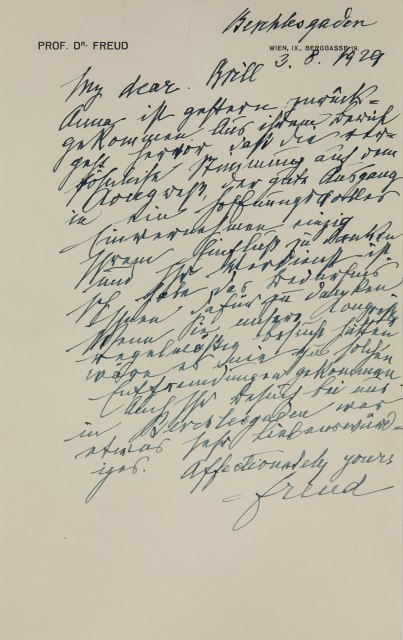 Berchtesgaden
PROF. DR. FREUD
WIEN, IX., BERGGASSE 19.
3. 8. 1929
My dear Brill
Anna ist gestern zurück-
gekommen Aus ihrem Bericht
geht hervor daß die ver-
söhnliche Stimmung auf dem
Kongreß, der gute Ausgang
in ein hoffnungsvolles
Einvernehmen einzig
Ihrem Einfluß zu danken
und Ihr Verdienst ist
Ich habe das Bedürfnis
Ihnen dafür zu danken
Wenn Sie unsere Kongreße
regelmäßig besucht hätten
wäre es nie zu solchen
Entfremdungen gekommen
Auch Ihr Besuch bei uns
in Berchtesgaden war
etwas sehr Liebenswürd-
iges. Affectionately yours
Freud